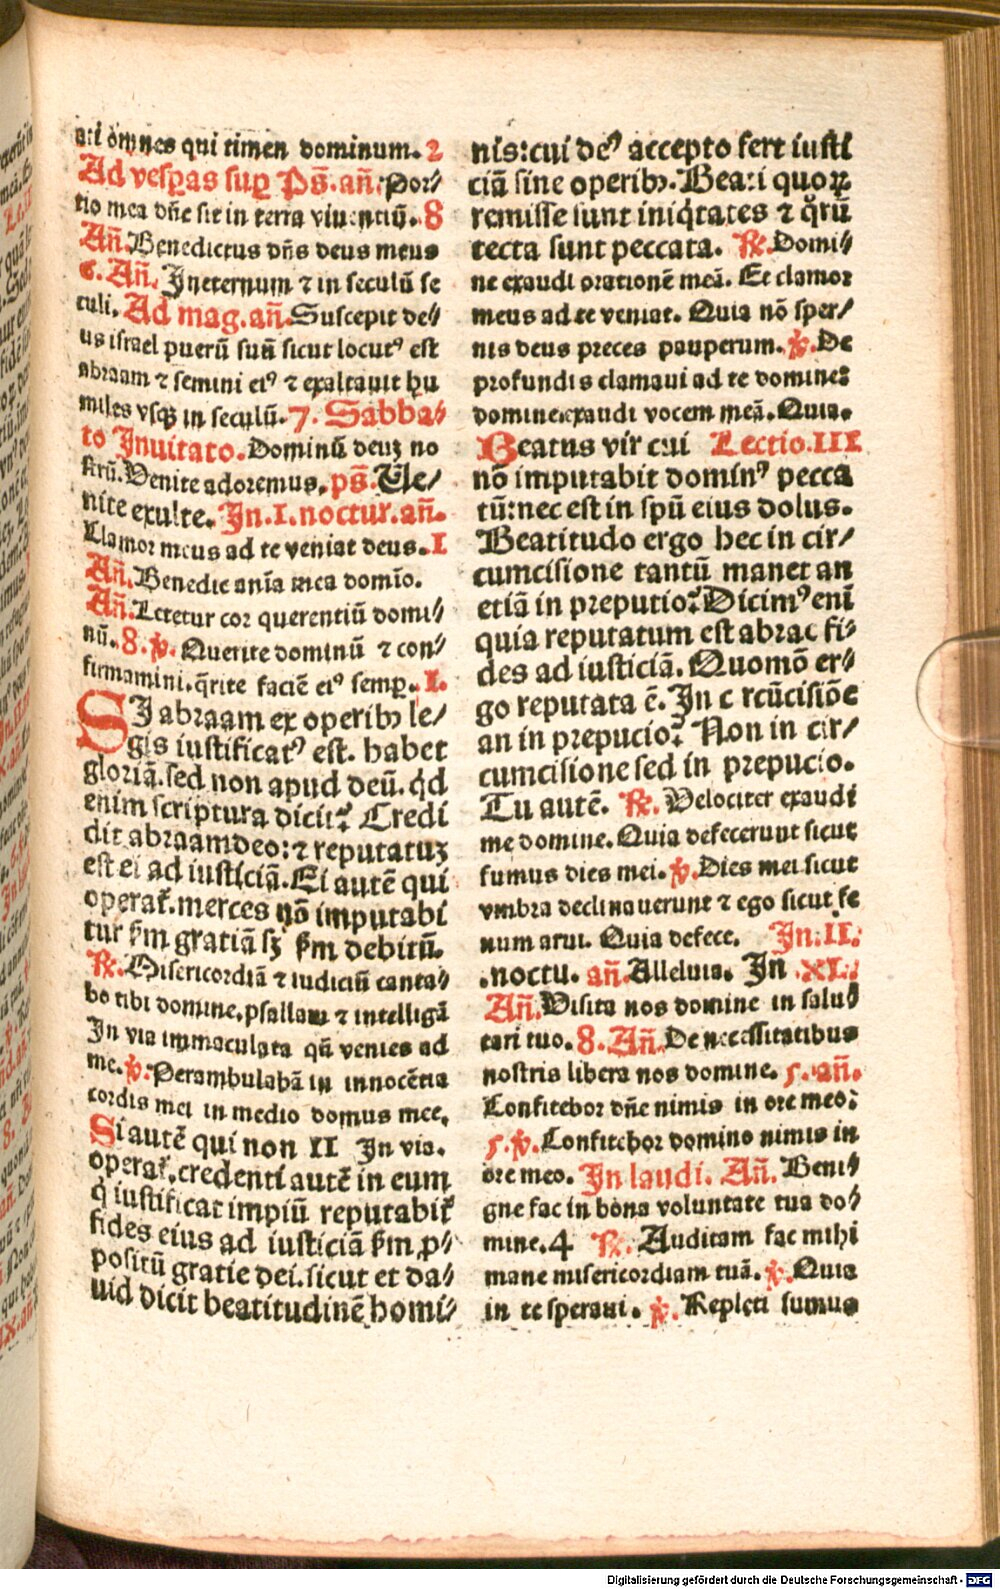 ati om̃nes qui timen dominum. 2
Ad vesꝑas suꝑ Ps̃. añ. Por⸗
tio mea dñe sit in terra viuentiũ. 8
Añ. Benedictus dñs deus meus
6. Añ. In eternum ⁊ in seculũ se
culi. Ad mag. añ. Suscepit de⸗
us israel puerũ suũ sicut locutꝰ est
abraam ⁊ semini eiꝰ ⁊ exaltauit hu
miles vsqꝫ in seculũ. 7. Sabba⸗
to Inuitato. Dominũ deuꝫ no
strũ. Venite adoremus. ps̃. Ue⸗
nite exulte. In. I. noctur. añ.
Clamor meus ad te veniat deus. I
Añ. Benedic anĩa mea domĩo.
Añ. Letetur cor querentiũ domi⸗
nũ. 8. ꝟ. Querite dominũ ⁊ con⸗
firmamini. q̃rite faciẽ eiꝰ semꝑ. I.
SI abraam ex operibꝫ le⸗
gis iustificatꝰ est. habet
gloriã. sed non apud deũ. qd̃
enim scriptura dicit? Credi
dit abraam deo: ⁊ reputatuꝫ
est ei ad iusticiã. Ei autẽ qui
operat̃. merces nõ imputabi
tur ẜm gratiã sꝫ ẜm debitũ.
℟. Misericordiã ⁊ iudiciũ canta⸗
bo tibi domine, psallam ⁊ intelligã
In via immaculata qñ venies ad
me. ꝟ. Perambulabã in innocẽtia
cordis mei in medio domus mee.
Si autẽ qui non II In via.
operat̃. credenti autẽ in eum
q̇ iustificat impiũ reputabit̃
fides eius ad iusticiã ẜm ꝓ⸗
positũ gratie dei. sicut et da⸗
uid dicit beatitudinẽ homi⸗
nis: cui deꝰ accepto fert iusti
ciã sine operibꝫ. Beati quoꝝ
remisse sunt iniq̇tates ⁊ q̊rũ
tecta sunt peccata. ℟. Domi⸗
ne exaudi orationẽ meã. Et clamor
meus ad te veniat. Quia nõ sper⸗
nis deus preces pauperum. ꝟ. De
profundis clamaui ad te domine:
domine exaudi vocem meã. Quia.
Beatus vir cui Lectio. III
nõ imputabit dominꝰ pecca
tũ: nec est in spũ eius dolus.
Beatitudo ergo hec in cir⸗
cumcisione tantũ manet an
etiã in preputio? Dicimꝰ enĩ
quia reputatum est abrae fi⸗
des ad iusticiã. Quomõ er⸗
go reputata ẽ. In c rcũcisiõe
an in prepucio? Non in cir⸗
cumcisione sed in prepucio.
Tu autẽ. ℟. Velociter exaudi
me domine. Quia defecerunt sicut
fumus dies mei. ꝟ. Dies mei sicut
vmbra declinauerunt ⁊ ego sicut fe
num arui. Quia defece. In. II.
noctu. añ. Alleluia. In XL.
Añ. Visita nos domine in salu⸗
tari tuo. 8. Añ. De necessitatibus
nostris libera nos domine. 5. añ.
Confitebor dñe nimis in ore meo:
5. ꝟ. Confitebor domino nimis in
ore meo. In laudi. Añ. Beni⸗
gne fac in bona voluntate tua do⸗
mine. 4 ℟. Auditam fac mihi
mane misericordiam tuã. ꝟ. Quia
in te speraui. ꝟ. Repleti sumus
Digitalisierung gefördert durch die Deutsche Forschungsgemeinschaft - DFG